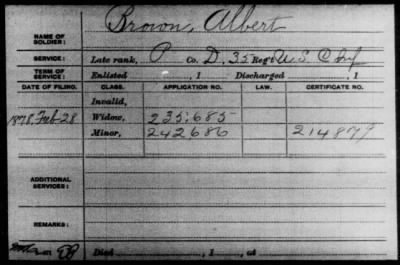 Brown, Albert
NAME OF SOLDIER:
SERVICE: Late rank, P Co. D, 35 Reg't U.S. C Inf
TERM OF SERVICE: Enlisted , 1 Discharged , 1
DATE OF FILING. CLASS. APPLICATION NO. LAW. CERTIFICATE NO.
Invalid,
1878, Feb 28 Widow, 235.685
Minor, 242686 214879
ADDITIONAL SERVICES:
REMARKS:
Died , 1 , at